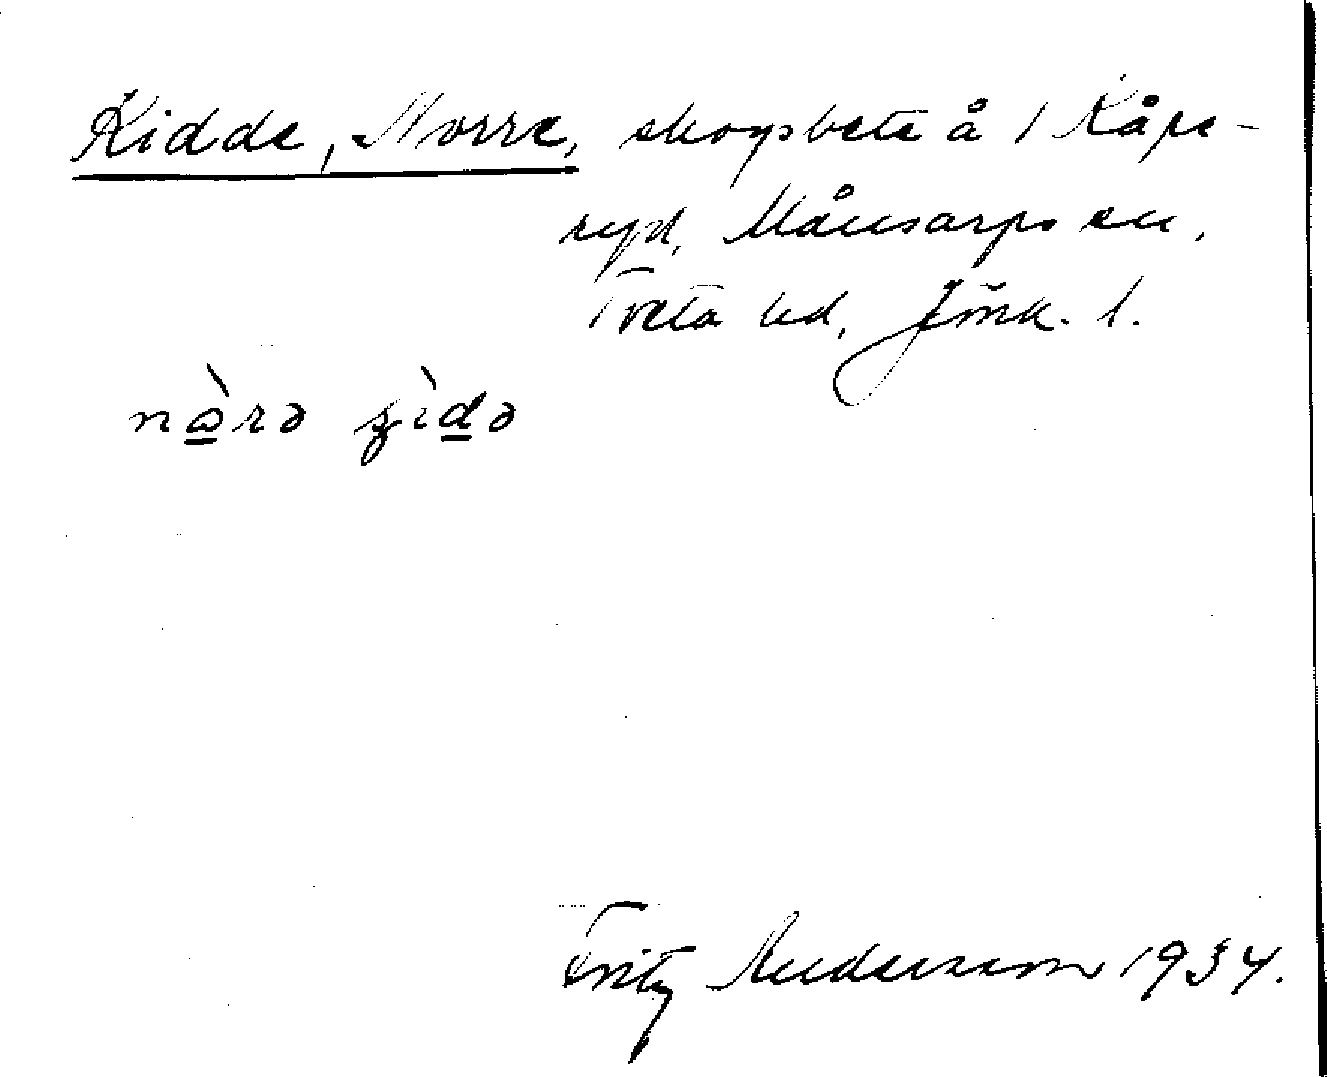 Kidde, Norre, skogsbete å 1 Kåpe-
ryd, Månsarps sn,
Tveta hd, Jönk. l.
Fritz Andersson 1934.